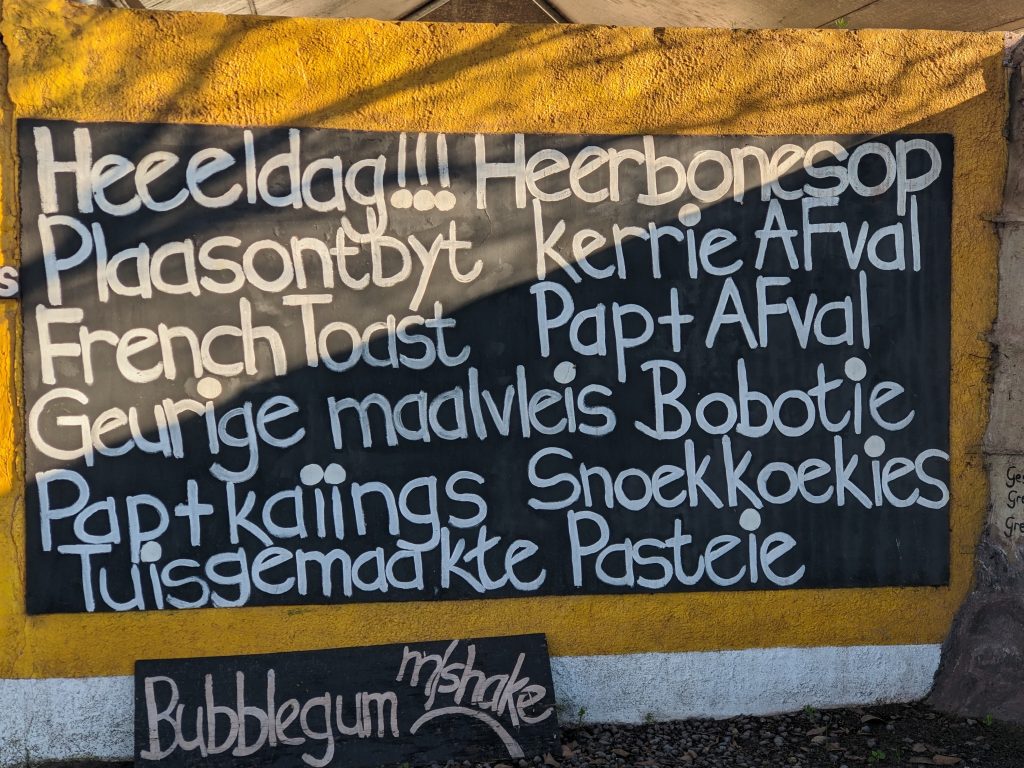 Heeeldag!!! Heerbonesop
Plaasontbyt kerrie AFval
French Toast Pap + AFval
Geurige maalvleis Bobotie
Pap + kaiings Snoekkoekies
Tuisgemaakte Pasteie
Bubblegum m/shake
s
Ges
Gre
Gre